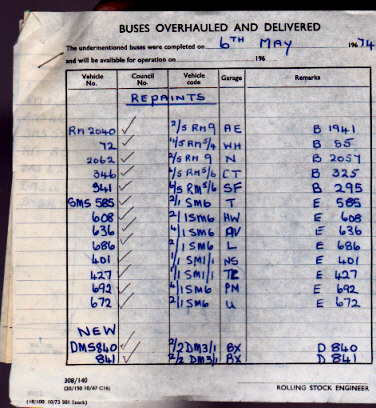 BUSES OVERHAULED AND DELIVERED
The undermentioned buses were completed on 6TH MAY 1967 74
and will be available for operation on 196
Vehicle No. Council No. Vehicle code Garage Remarks
REPAINTS
RM 2040 ✓ 2/5 RM9 AE B 1941
72 ✓ 4/5 RM5/4 WH B 55
2062 ✓ 2/5 RM 9 N B 2057
346 ✓ 4/5 RM5/6 CT B 325
941 ✓ 4/5 RM5/6 SF B 295
SMS 585 ✓ 2/1 SM6 T E 585
608 ✓ 2/1 SM6 HW E 608
636 ✓ 4/1 SM6 AV E 636
686 ✓ 2/1 SM6 L E 686
401 ✓ 1/1 SM1/1 NS E 401
427 ✓ 1/1 SM1/1 E 427
692 ✓ 4/1 SM6 PM E 692
672 ✓ 2/1 SM6 U E 672
NEW
DMS 840 ✓ 2/2 DM3/1 BX D 840
841 ✓ 2/2 DM3/1 BX D 841
308/140
(20/150 10/67 C16)
ROLLING STOCK ENGINEER
(18/100 10/73 501 Stock)